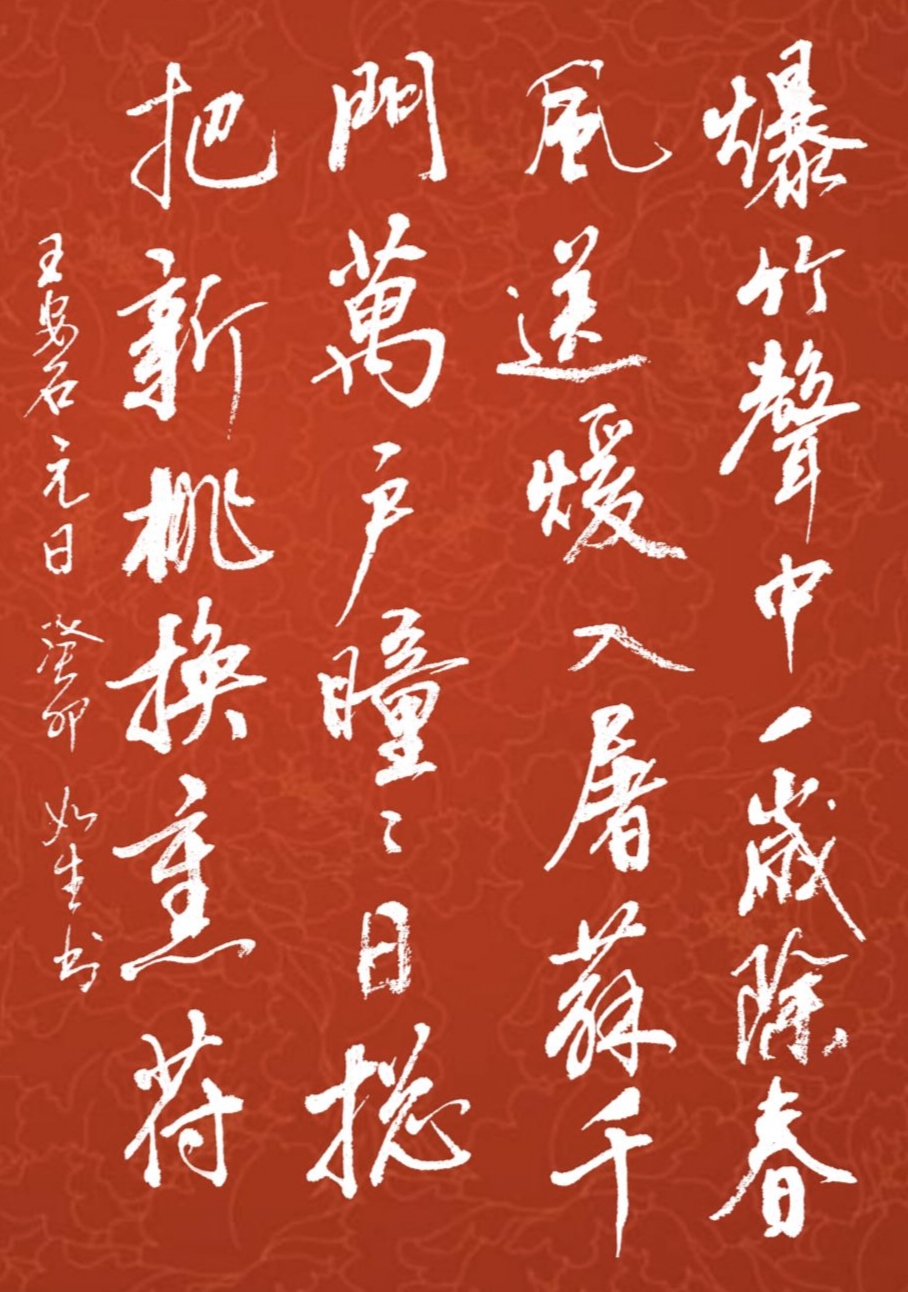 爆竹聲中一歲除春
風送煖入屠蘇千
門萬戶曈〻日摠
把新桃換舊符
王安石元日癸卯如生书